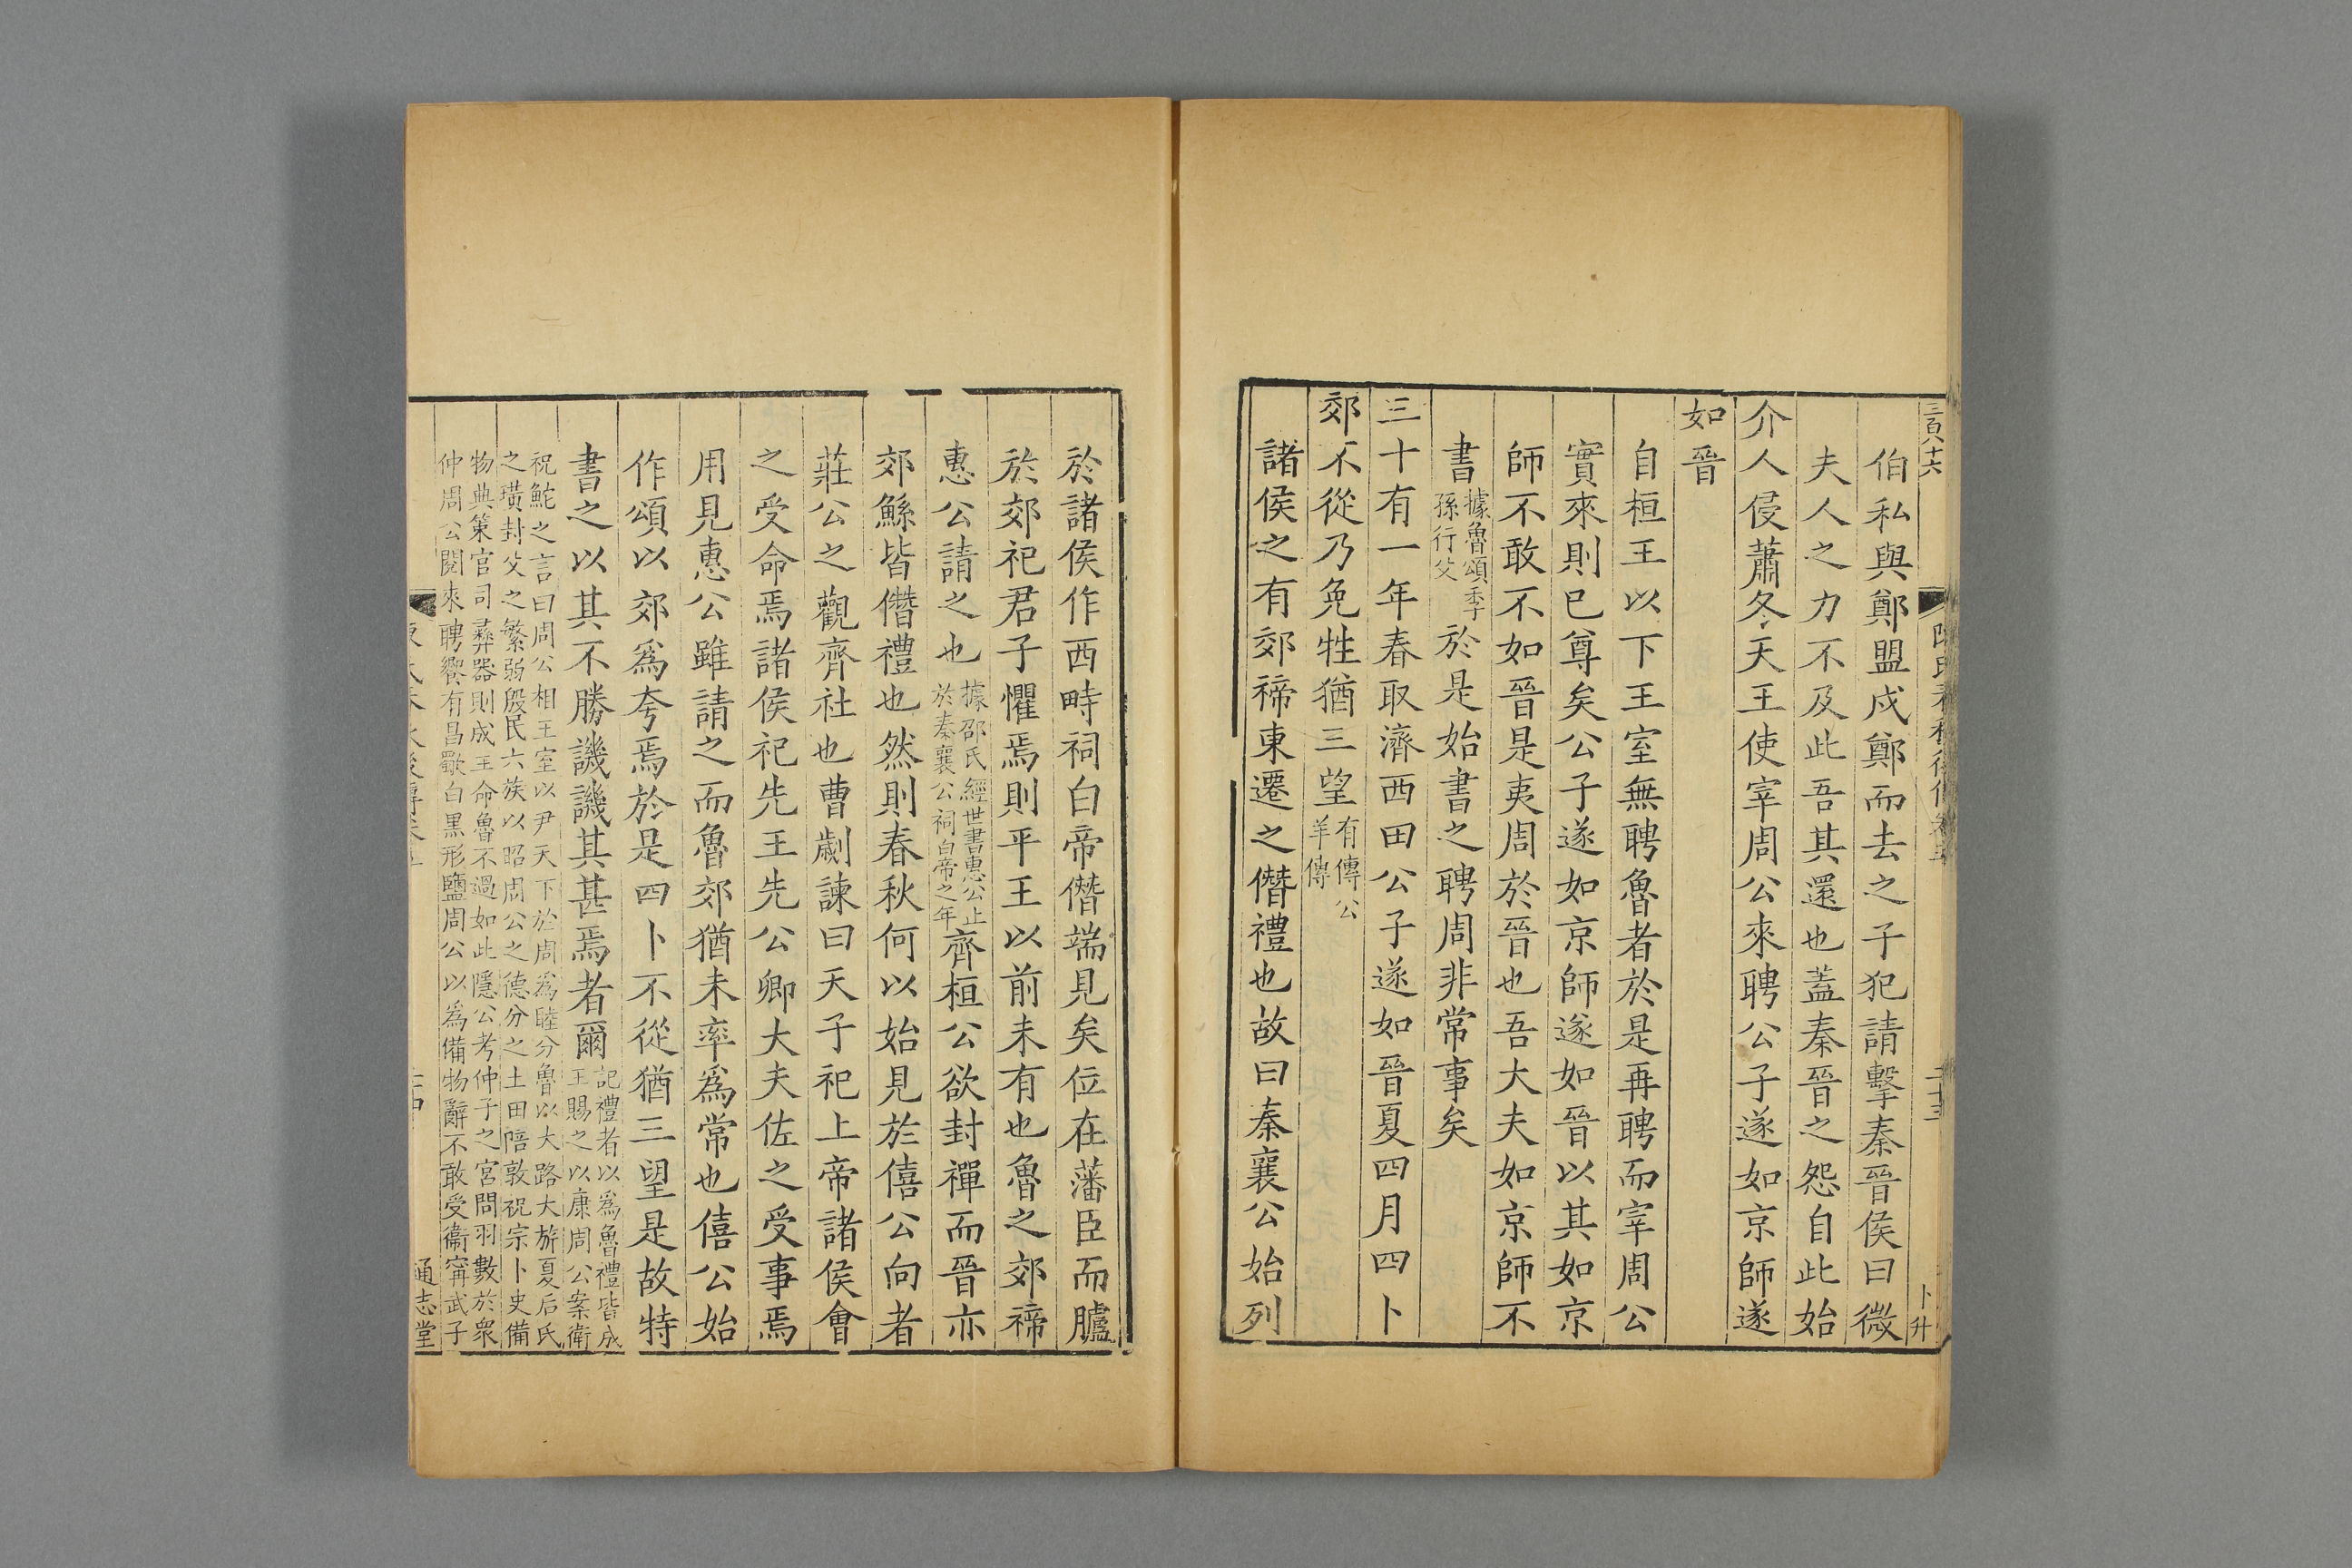 三百八十六
卜升
伯私與鄭盟戍鄭而去之子犯請擊秦晉侯曰微
夫人之力不及此吾其還也蓋秦晉之怨自此始
介人侵蕭冬天王使宰周公來聘公子遂如京師遂
如晉
自桓王以下王室無聘魯者於是再聘而宰周公
實來則已尊矣公子遂如京師遂如晉以其如京
師不敢不如晉是夷周於晉也吾大夫如京師不
書據魯頌季孫行父於是始書之聘周非常事矣
三十有一年春取濟西田公子遂如晉夏四月四卜
郊不從乃免牲猶三望有傳公羊傳
諸侯之有郊禘東遷之僭禮也故曰秦襄公始列
於諸侯作西畤祠白帝僭端見矣位在藩臣而臚
於郊祀君子懼焉則平王以前未有也魯之郊禘
惠公請之也據邵氏經世書惠公止於秦襄公祠白帝之年齊桓公欲封禪而晉亦
郊鯀皆僭禮也然則春秋何以始見於僖公向者
莊公之觀齊社也曹劌諫曰天子祀上帝諸侯會
之受命焉諸侯祀先王先公卿大夫佐之受事焉
用見惠公雖請之而魯郊猶未率為常也僖公始
作頌以郊為夸焉於是四卜不從猶三望是故特
書之以其不勝譏譏其甚焉者爾記禮者以為魯禮皆成王賜之以康周公案衛
祝鮀之言曰周公相王室以尹天下於周為睦分魯以大路大旂夏后氏
之璜封父之繁弱殷民六族以昭周公之德分之土田陪敦祝宗卜史備
物典策官司彝器則成王命魯不過如此隱公考仲子之宮問羽數於衆
仲周公閱來聘饗有昌歜白黑形鹽周公以為備物辭不敢受衞甯武子
通志堂